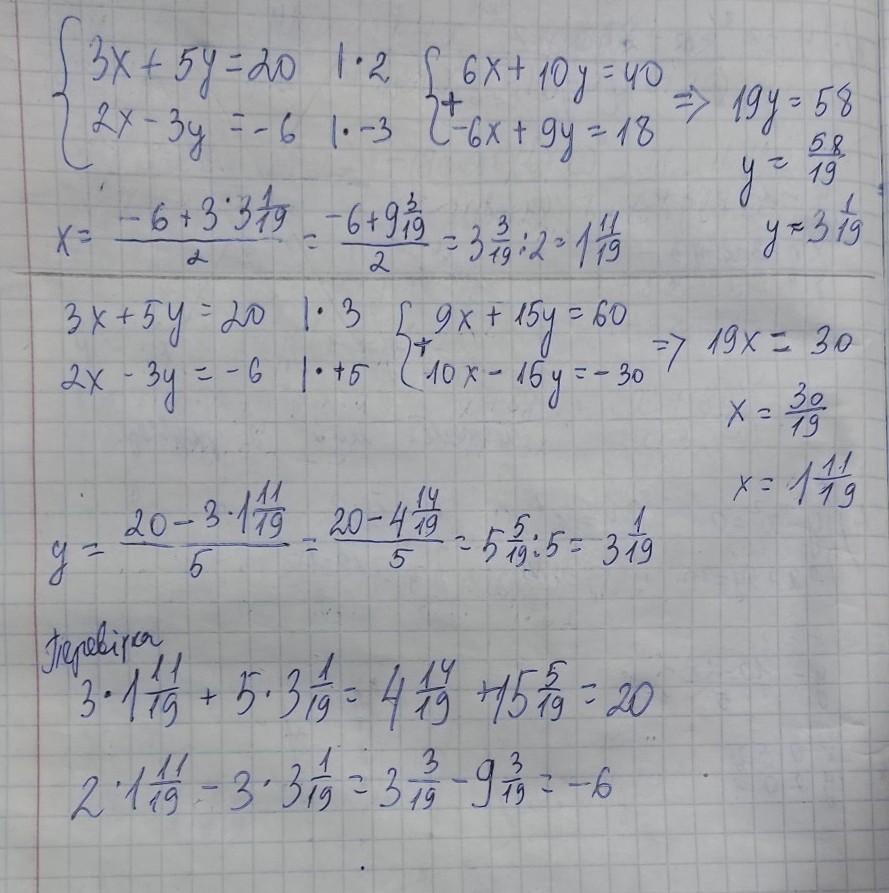 3x + 5y = 20 | · 2 6x + 10y = 40
2x - 3y = -6 | · -3 + -6x + 9y = 18 => 19y = 58
y = 58/19
x = (-6 + 3 · 3 1/19)/2 = (-6 + 9 3/19)/2 = 3 3/19 : 2 = 1 11/19 y = 3 1/19
3x + 5y = 20 | · 3 9x + 15y = 60
2x - 3y = -6 | · +5 + 10x - 15y = -30 => 19x = 30
x = 30/19
x = 1 11/19
y = (20 - 3 · 1 11/19)/5 = (20 - 4 14/19)/5 = 5 5/19 : 5 = 3 1/19
Перевірка
3 · 1 11/19 + 5 · 3 1/19 = 4 14/19 + 15 5/19 = 20
2 · 1 11/19 - 3 · 3 1/19 = 3 3/19 - 9 3/19 = -6